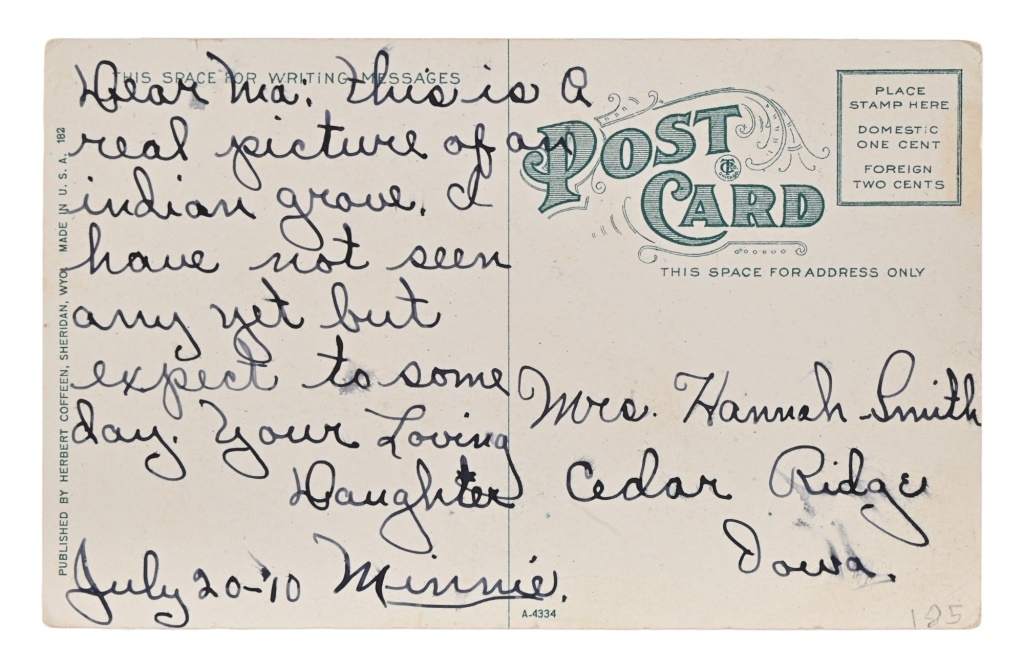 THIS SPACE FOR WRITING MESSAGES
Dear Ma: this is a
real picture of an
indian grave. I
have not seen
any yet but
expect to some
day. Your Loving
Daughter
July 20-'10 Minnie.
PUBLISHED BY HERBERT COFFEEN, SHERIDAN, WYO. MADE IN U. S. A. 182
POST
CARD
THIS SPACE FOR ADDRESS ONLY
PLACE
STAMP HERE
DOMESTIC
ONE CENT
FOREIGN
TWO CENTS
Mrs. Hannah Smith
Cedar Ridge
Iowa.
A-4334
185